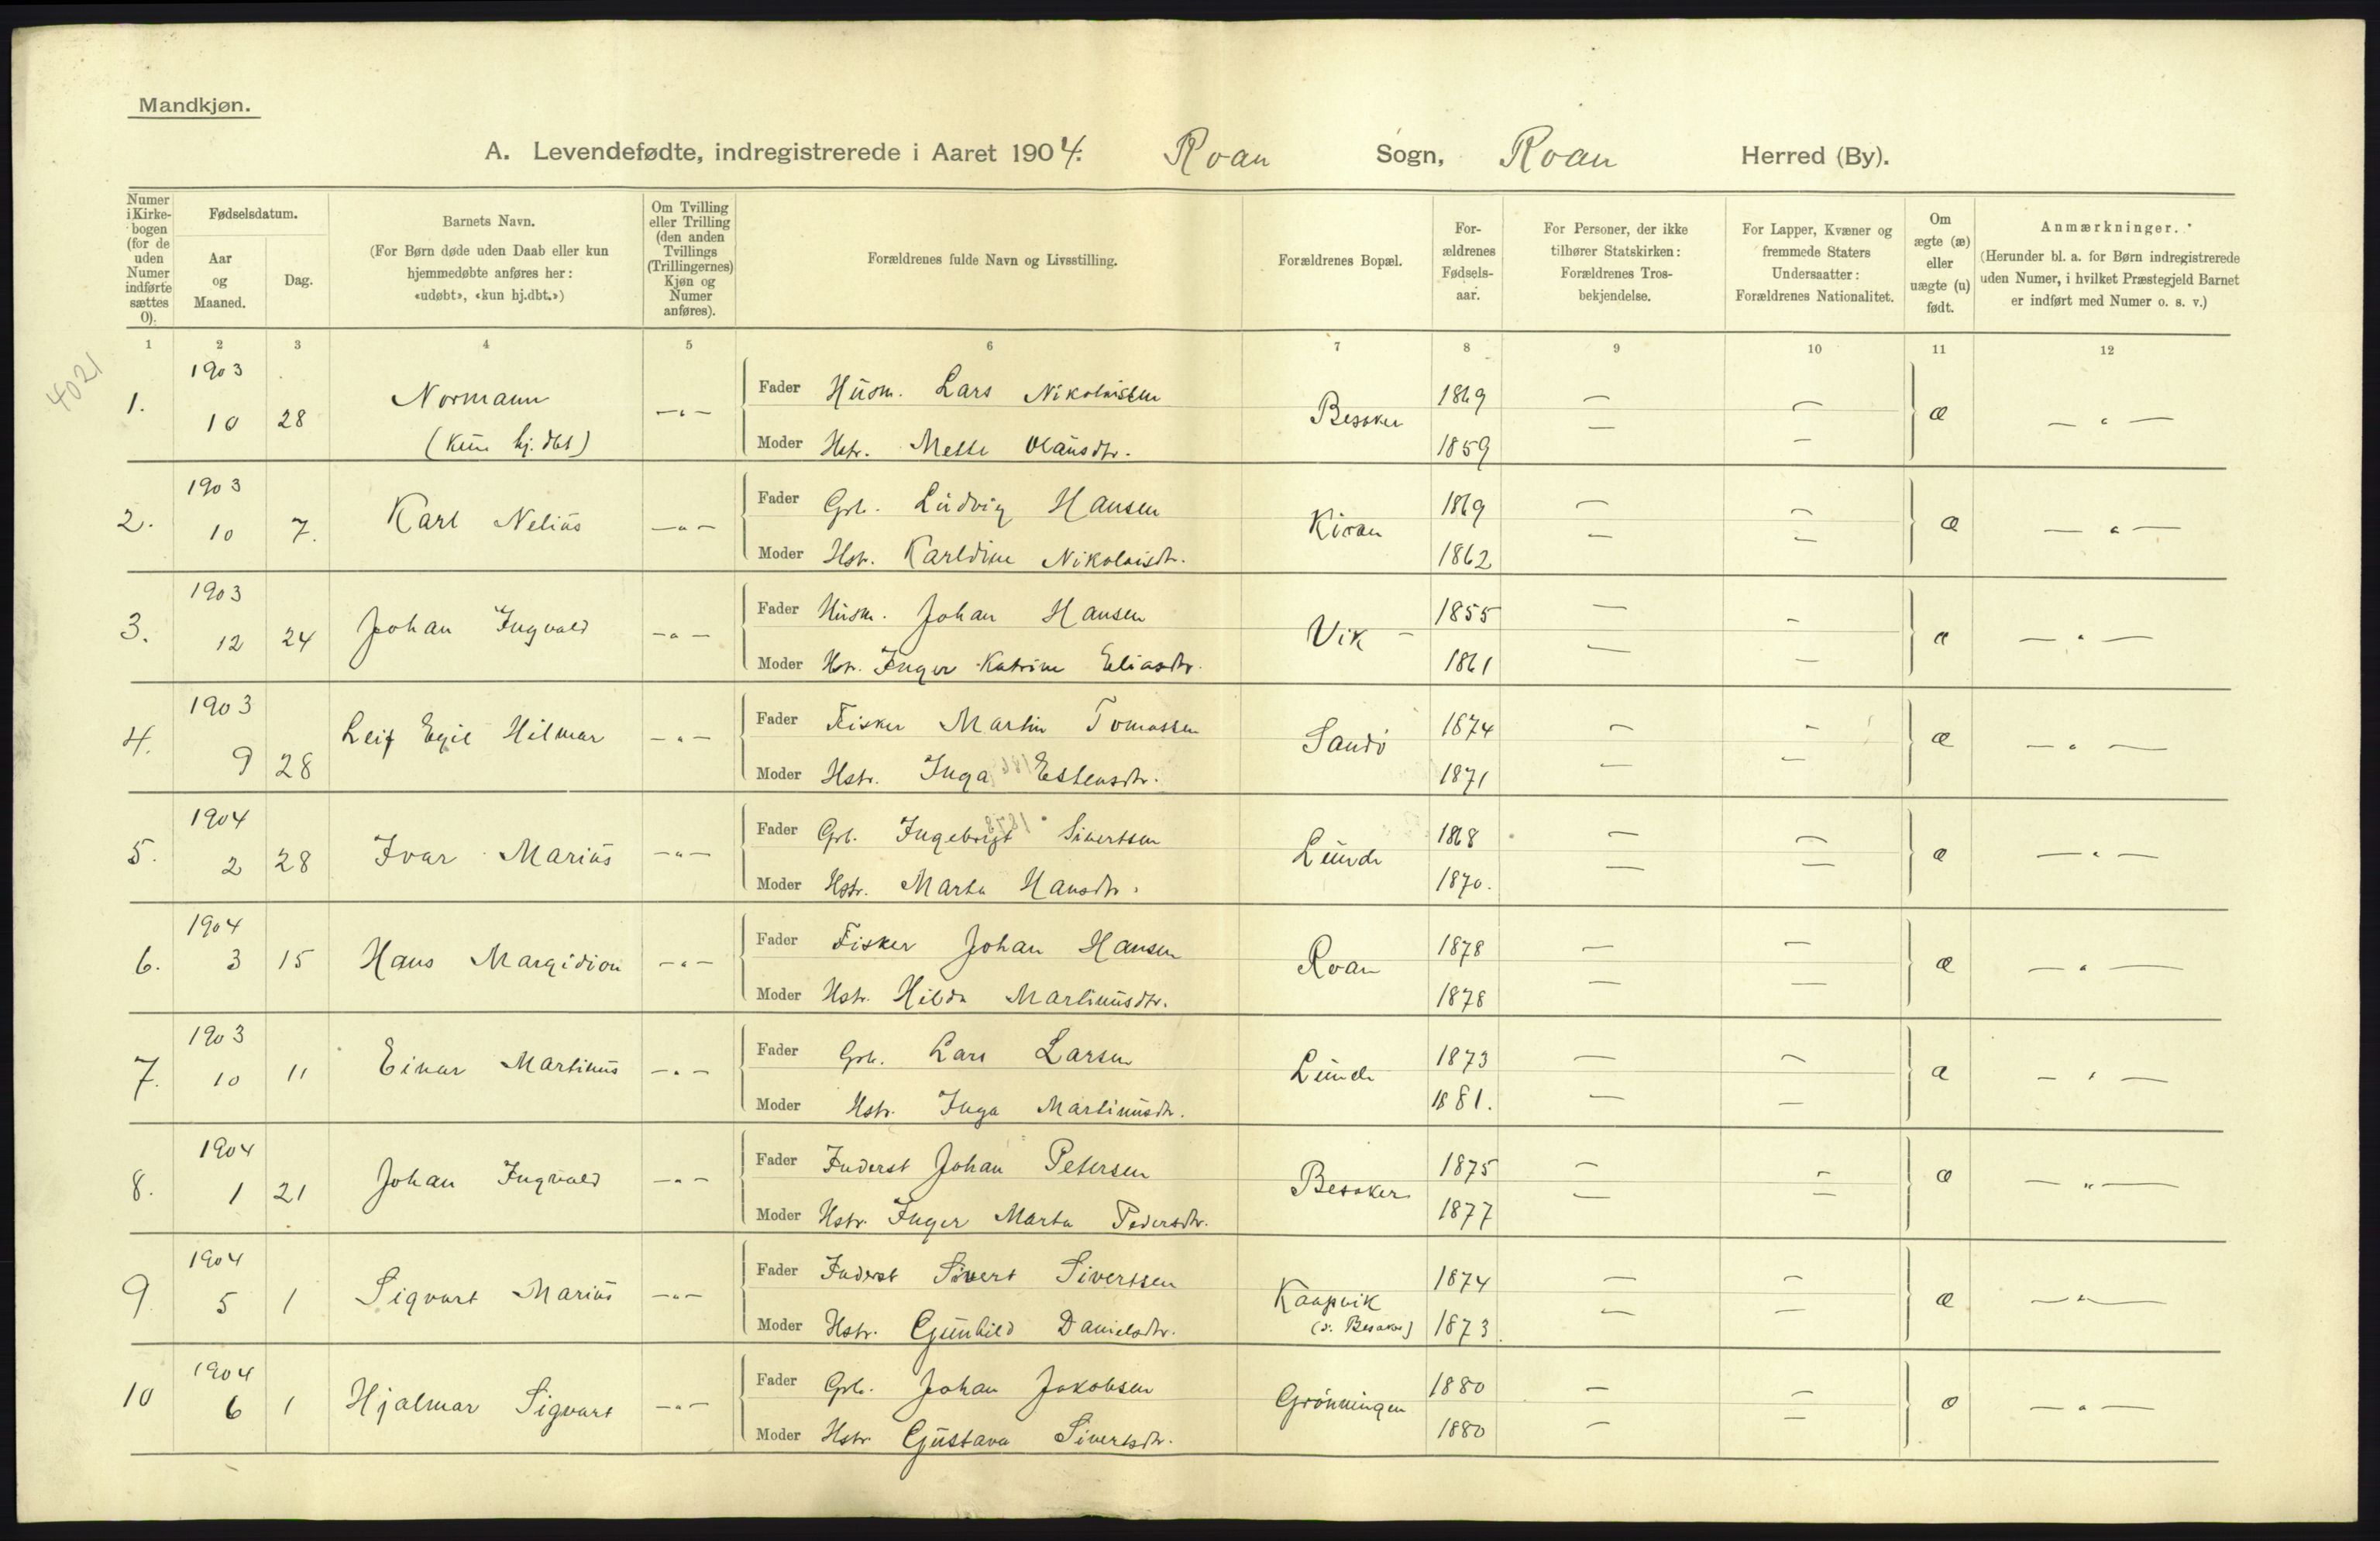 Mandkjøn.
A. Levendefødte, indregistrerede i Aaret 1904. Roan Sogn, Roan Herred (By).
Numer i Kirke-bogen (for de uden Numer indførte sættes 0).
Fødselsdatum.
Aar og Maaned.
Dag.
Barnets Navn.
(For Børn døde uden Daab eller kun hjemmedøbte anføres her: «udøbt», «kun hj.dbt.»)
Om Tvilling eller Trilling (den anden Tvillings (Trillingernes) Kjøn og Numer anføres).
Forældrenes fulde Navn og Livsstilling.
Forældrenes Bopæl.
For-ældrenes Fødsels-aar.
For Personer, der ikke tilhører Statskirken: Forældrenes Tros-bekjendelse.
For Lapper, Kvæner og fremmede Staters Undersaatter: Forældrenes Nationalitet.
Om ægte (æ) eller uægte (u) født.
Anmærkninger.
(Herunder bl. a. for Børn indregistrerede uden Numer, i hvilket Præstegjeld Barnet er indført med Numer o. s. v.)
1 2 3 4 5 6 7 8 9 10 11 12
4021
1. 1903 10 28 Normann (kun hj. dbt) —"— Fader Husm. Lars Nikolaisen Bessker 1869 — — æ —"—
Moder Hstr. Mette Olausdtr. 1859 — —
2. 1903 10 7. Karl Nelius —"— Fader Grb. Ludvig Hansen Kiran 1869 — — æ —"—
Moder Hstr. Karldine Nikolaisdtr. 1862 — —
3. 1903 12 24 Johan Ingvald —"— Fader Husm. Johan Hansen Vik — 1855 — — æ —"—
Moder Hstr. Inger Katrine Eliasdtr. 1861 — —
4. 1903 9 28 Leif Egil Hilmar —"— Fader Fisker Martin Tomassen Sandö 1874 — — æ —"—
Moder Hstr. Inga Estensdtr. 1871 — —
5. 1904 2 28 Ivar Marius —"— Fader Grb. Ingebrigt Sivertsen Lunde 1868 — — æ —"—
Moder Hstr. Marta Hansdtr. 1870. — —
6. 1904 3 15 Hans Margidion —"— Fader Fisker Johan Hansen Roan 1878 — — æ —"—
Moder Hstr. Hilda Martinusdtr. 1878 — —
7. 1903 10 11 Einar Martinus —"— Fader Grb. Lars Larsen Lunde 1873 — — æ —"—
Moder Hstr. Inga Martinusdtr. 1881. — —
8. 1904 1 21 Johan Ingvald —"— Fader Inderst Johan Petersen Bessker 1875 — — æ —"—
Moder Hstr. Inger Marta Pedersdtr. 1877 — —
9 1904 5 1 Sigvart Marius —"— Fader Inderst Sivert Sivertsen Kaapvik 1874 — — æ —"—
Moder Hstr. Gunhild Danielsdtr. (v. Besaker) 1873 — —
10 1904 6 1 Hjalmar Sigvart —"— Fader Grb. Johan Jakobsen Grönningen 1880 — — æ —"—
Moder Hstr Gustava Sivertsdtr. 1880 — —